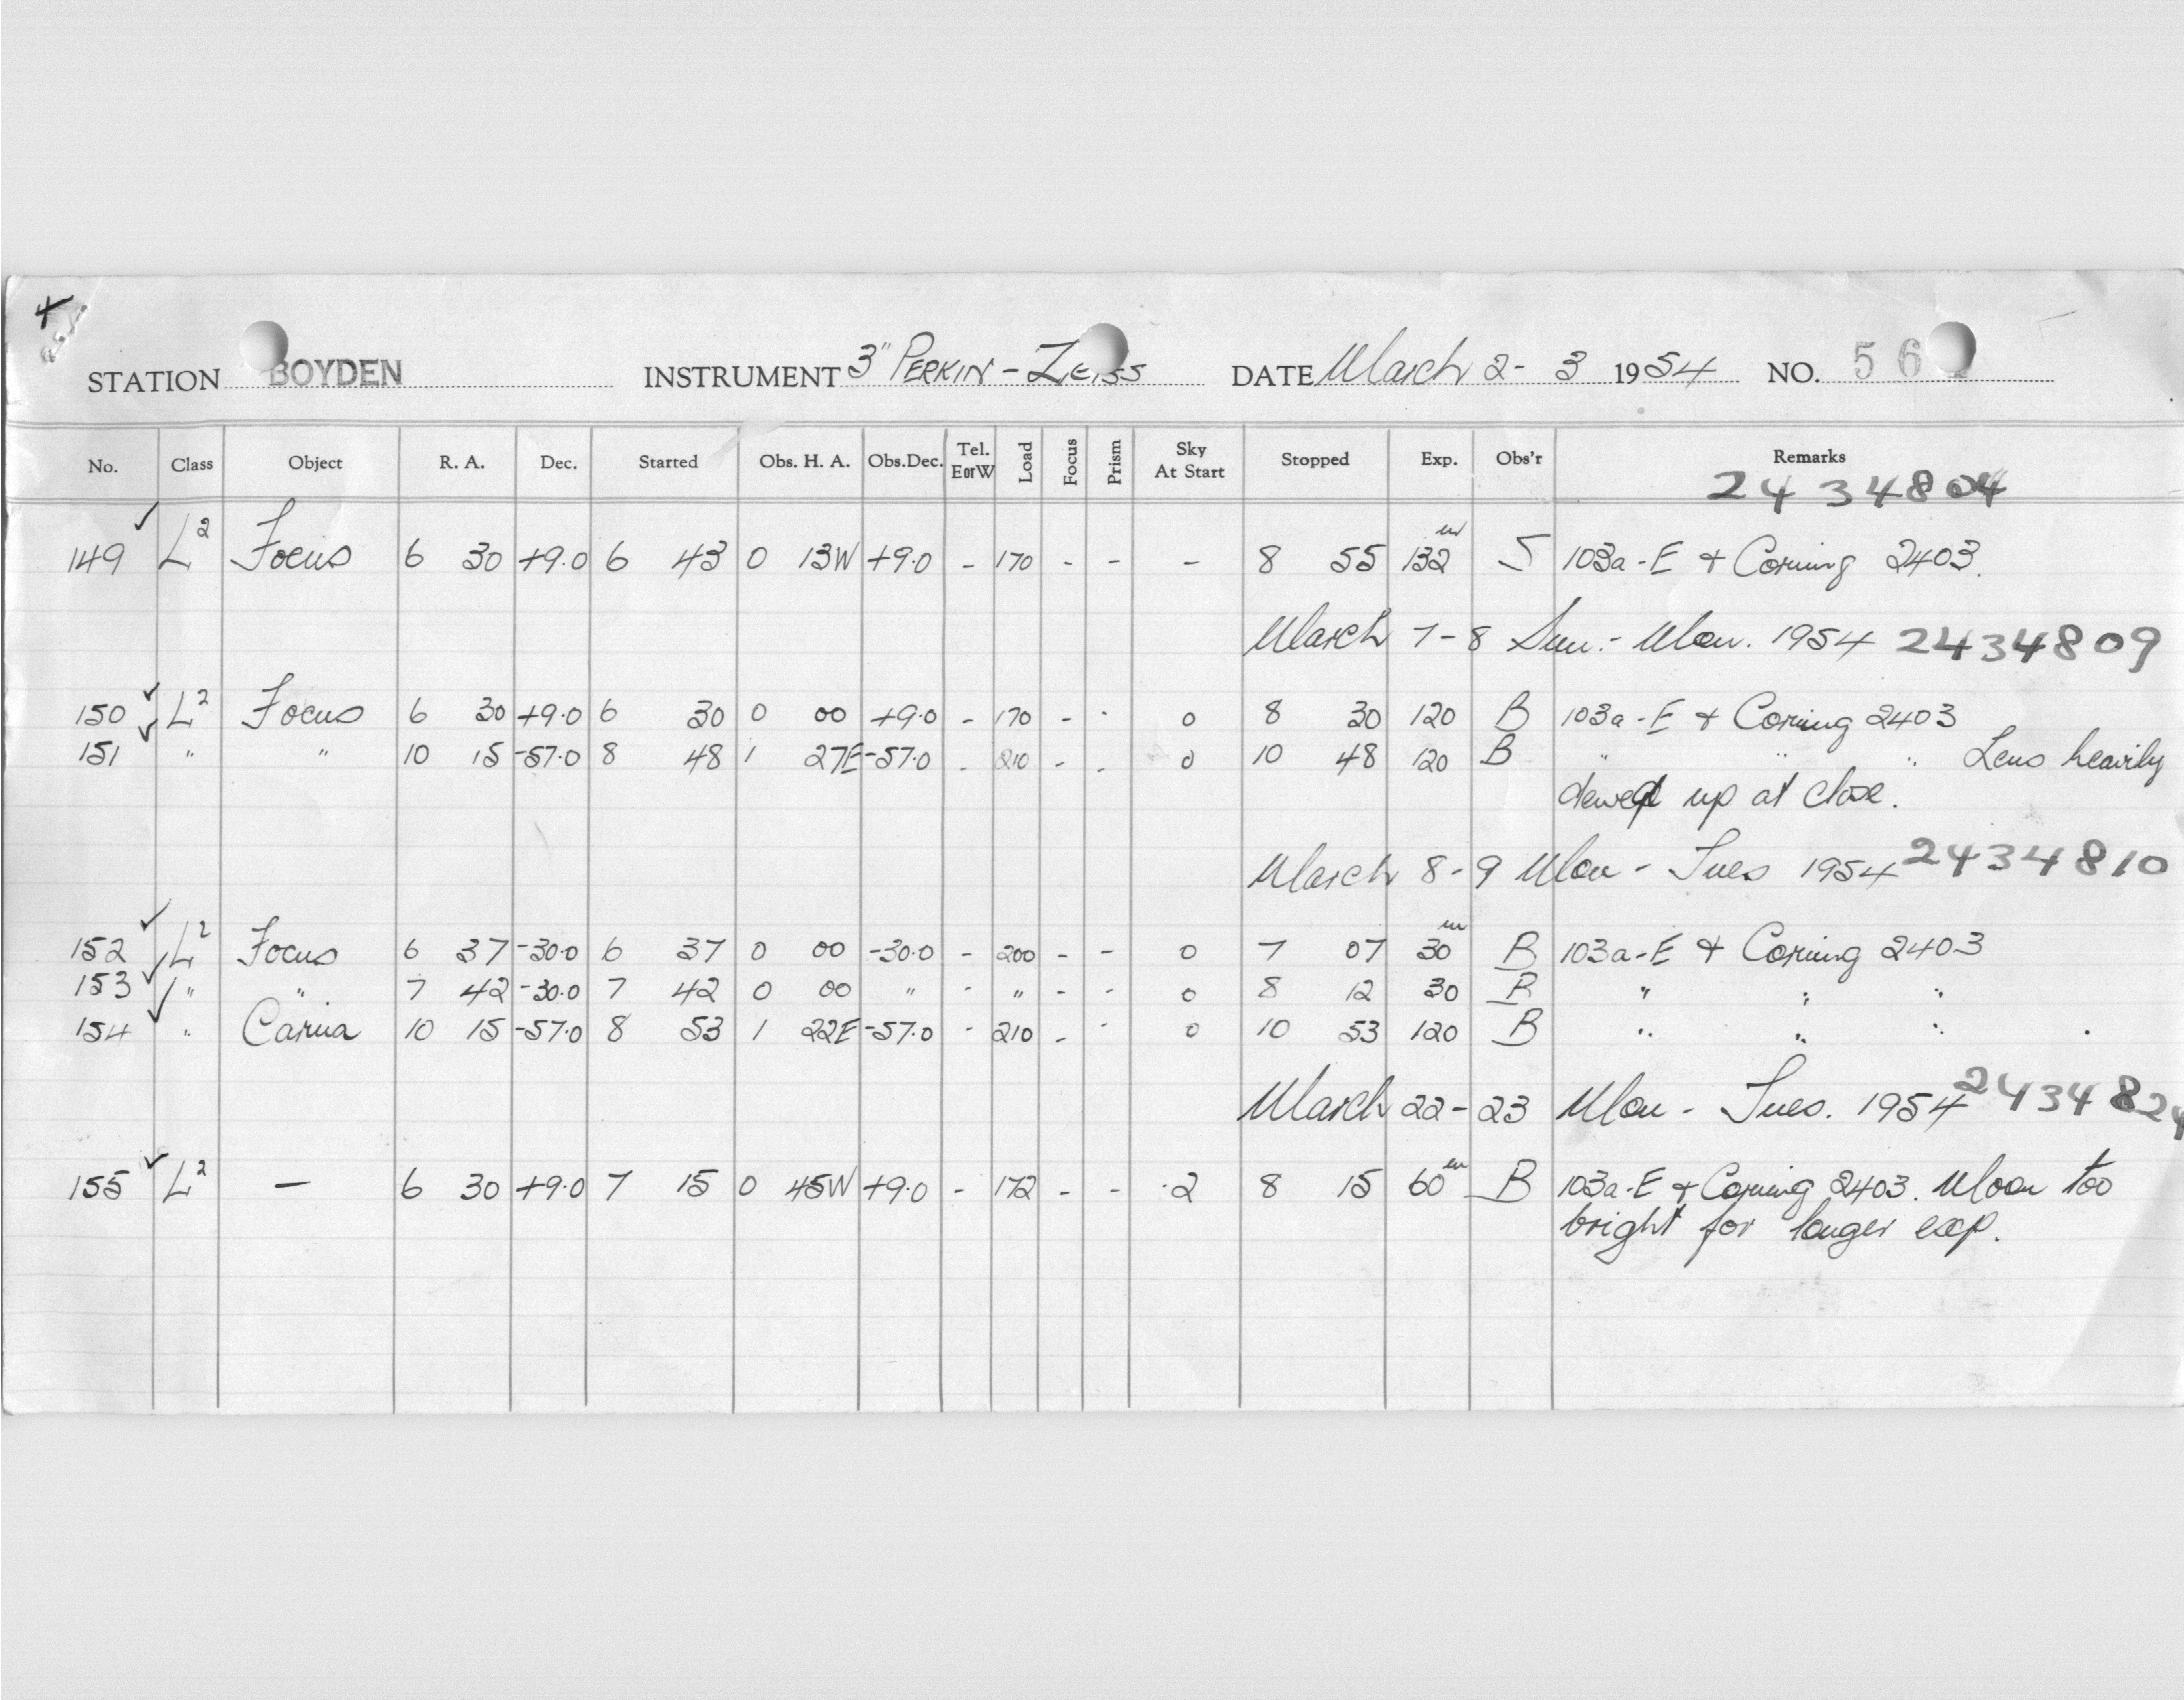 STATION BOYDEN INSTRUMENT 3" PERKIN-ZEISS DATE March 2-3 1954 NO. 56
No. Class Object R. A. Dec. Started Obs. H. A. Obs.Dec. Tel. E or W Load Focus Prism Sky At Start Stopped Exp. Obs'r Remarks
2434804
149 L² Focus 6 30 +9.0 6 43 0 13W +9.0 - 170 - - - 8 55 132m S 103a-E + Corning 2403.
March 7-8 Sun.- Mon. 1954 2434809
150 L² Focus 6 30 +9.0 6 30 0 00 +9.0 - 170 - - 0 8 30 120 B 103a-E + Corning 2403
151 " " 10 15 -57.0 8 48 1 27E -57.0 - 210 - - 0 10 48 120 B " " " Lens heavily
dewed up at close.
March 8-9 Mon - Tues 1954 2434810
152 L² Focus 6 37 -30.0 6 37 0 00 -30.0 - 200 - - 0 7 07 30m B 103a-E + Corning 2403
153 " " 7 42 -30.0 7 42 0 00 " - " - - 0 8 12 30 B " " "
154 " Carina 10 15 -57.0 8 53 1 22E -57.0 - 210 - - 0 10 53 120 B " " "
March 22-23 Mon - Tues. 1954 2434824
155 L² — 6 30 +9.0 7 15 0 45W +9.0 - 172 - - 2 8 15 60m B 103a-E + Corning 2403. Moon too
bright for longer exp.